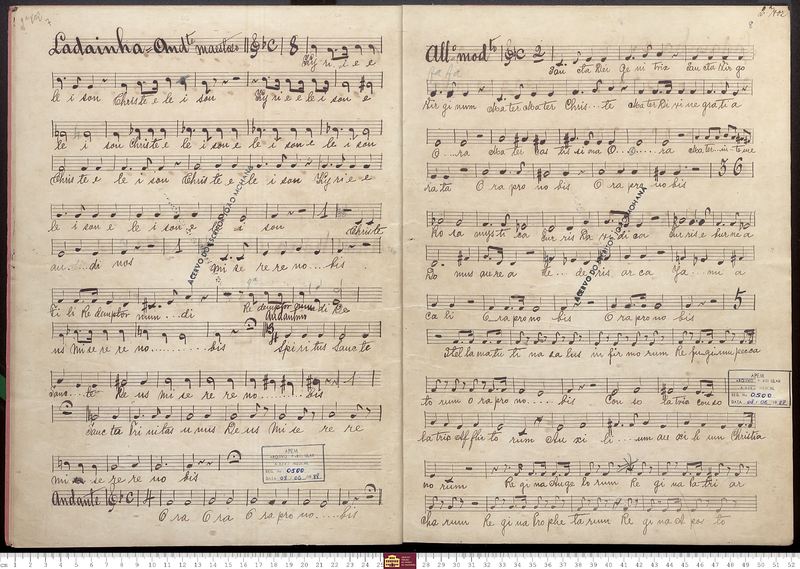 Ladainha = Andte maestoso C 8
Ky ri e e
le i son Christe e le i son Ky ri e e le i son e
le i son Christe e le i son e le i son e le i son
Chris te e le i son Chris te e le i son Ky ri e e
le i son e le i son e le i son Christe
au....di nos mi se re re no....bis
Fi li Redemptor mun...di Redemptor mundi De
Andantino
us Mi se re re no.........bis Spiritus Sancte
Sanc...te De us Mi se re re no........bis 1
Sanc ta Trinitas u nus De us Mi se re re
mi se re re no bis
Andante C 4
O ra O ra O ra pro no.....bis
ACERVO DO ESCRIVÃO JOÃO MOHANA
APEM
REG. No 0500
2a voz
8
Allo modto C 2
San cta Dei Ge ni trix San cta Vir go
Vir gi num Mater Mater Chris...te Mater Di vi ne gra ti a
O....ra Ma ter Cas tis si ma O......ra Mater...in...te me
rata O ra pro no bis O ra pro no bis 5 6
Ro sa mys ti ca Tur ris Da vi di ca Tur ris e bur ne a
Do mus au re a Fe...de ris ar ca Ja...nu a
ca li O ra pro no bis O ra pro no bis 5
Stel la ma tu ti na sa lus in fir mo rum Re fu gi um pec ca
to rum O ra pro no.....bis Con so la trix con so
la trix Afflic to rum Au xi li....um au xi li um Christia
no rum Re gi na Ange lo rum Re gi na Pa tri ar
cha rum Re gi na Pro phe ta rum Re gi na A pos to
ACERVO DO ESCRIVÃO JOÃO MOHANA
APEM
REG. No 0500